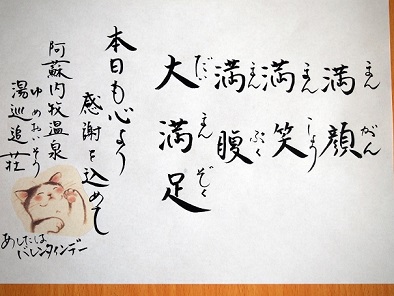 まんがん
満顔
まんしょう
満笑
まんぷく
満腹
だいまんぞく
大満足
本日も心より
感謝を込めて
阿蘇内牧温泉
ゆめおいそう
湯巡追荘
あしたは
バレンタインデー